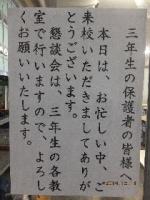 三年生の保護者の皆様へ
本日は、お忙しい中、ご
来校いただきましてありが
とうございます。
懇談会は、三年生の各教
室で行いますので、よろし
くお願いいたします。